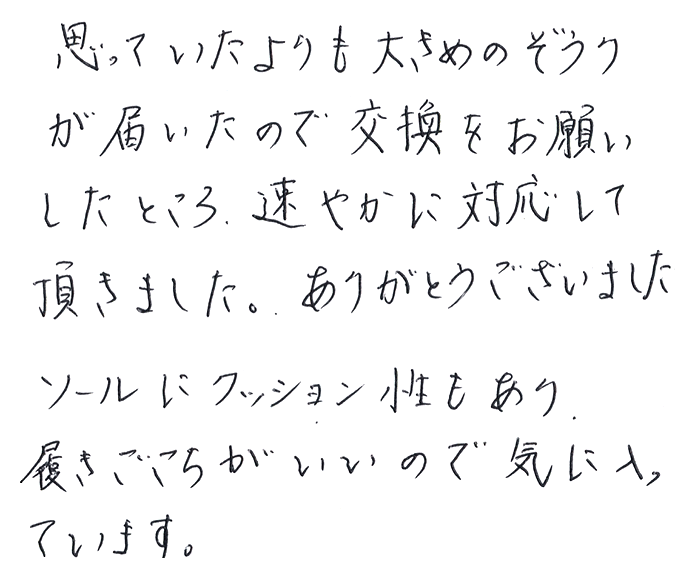 思っていたよりも大きめのぞうり
が届いたので交換をお願い
したところ、速やかに対応して
頂きました。ありがとうございました
ソールにクッション性もあり、
履きごこちがいいので気に入っ
ています。